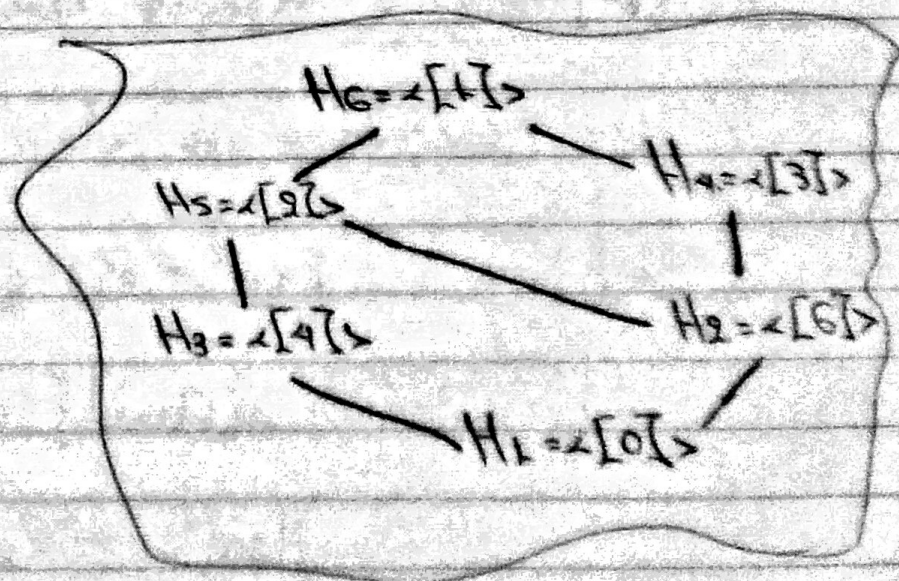 H6=<[1]>
H5=<[2]> H4=<[3]>
H3=<[4]> H2=<[6]>
H1=<[0]>